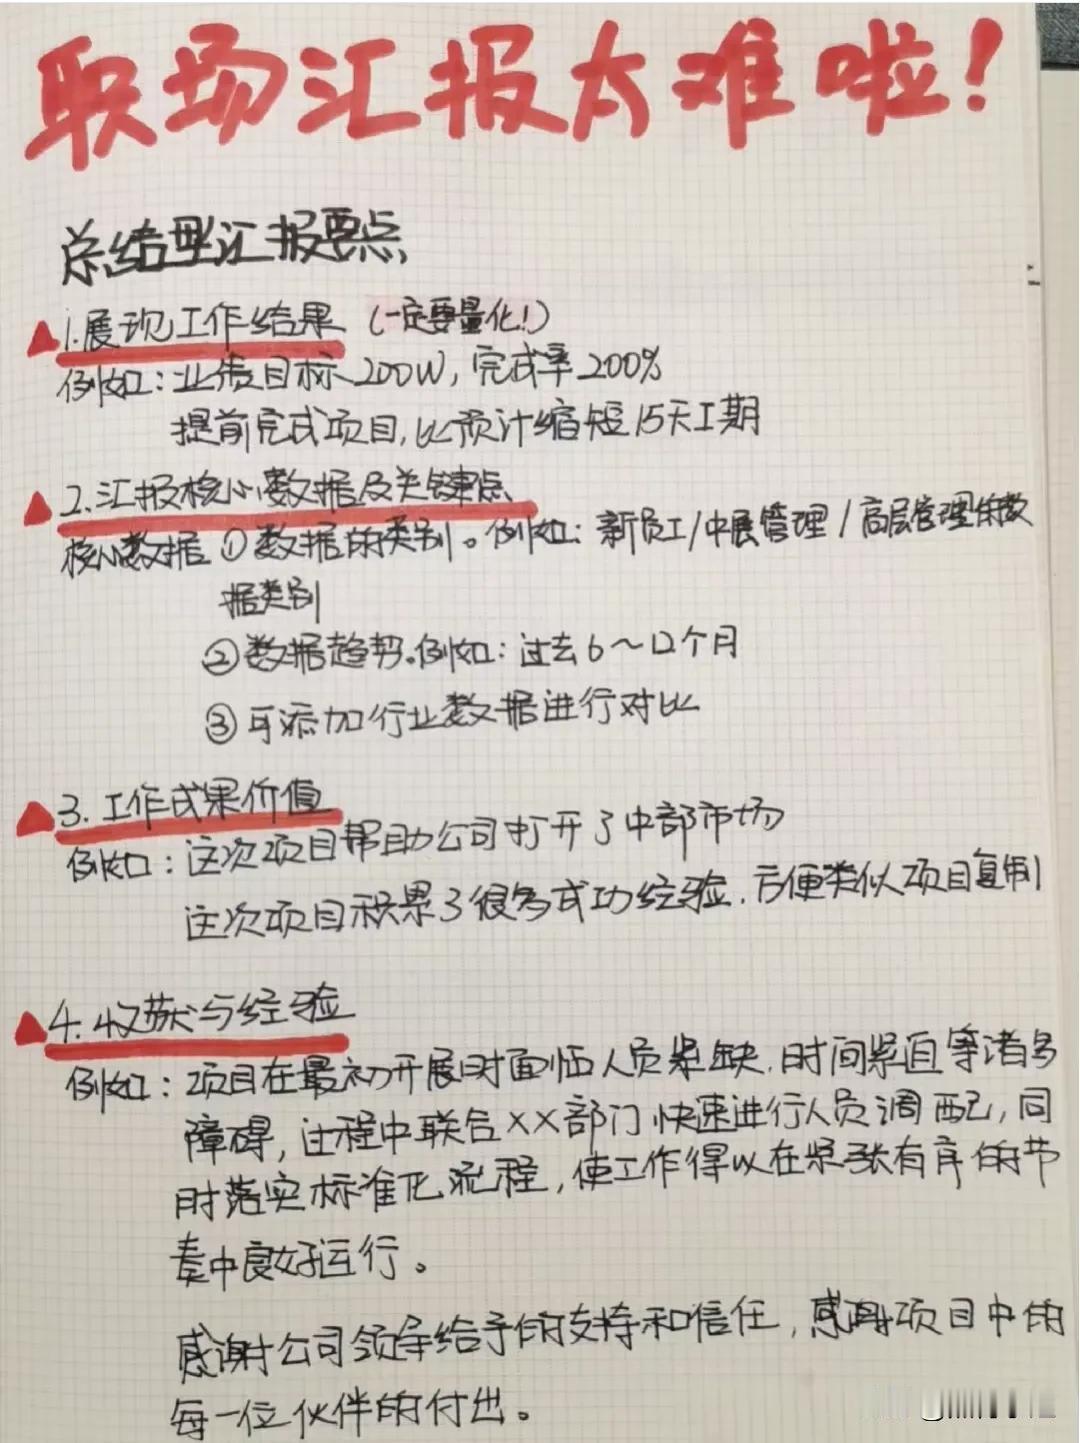 职场汇报太难啦！
总结型汇报要点
1.展现工作结果（一定要量化！）
例如：业绩目标200W，完成率200%
提前完成项目，比预计缩短15天工期
2.汇报核心数据及关键点
核心数据①数据的类别。例如：新员工/中层管理/高层管理的数
据类别
②数据趋势。例如：过去6～12个月
③可添加行业数据进行对比
3.工作成果价值
例如：这次项目帮助公司打开了中部市场
这次项目积累了很多成功经验，方便类似项目复制
4.收获与经验
例如：项目在最初开展时面临人员紧缺，时间紧迫等诸多
障碍，过程中联合××部门快速进行人员调配，同
时落实标准化流程，使工作得以在紧张有序的节
奏中良好运行。
感谢公司领导给予的支持和信任，感谢项目中的
每一位伙伴的付出。